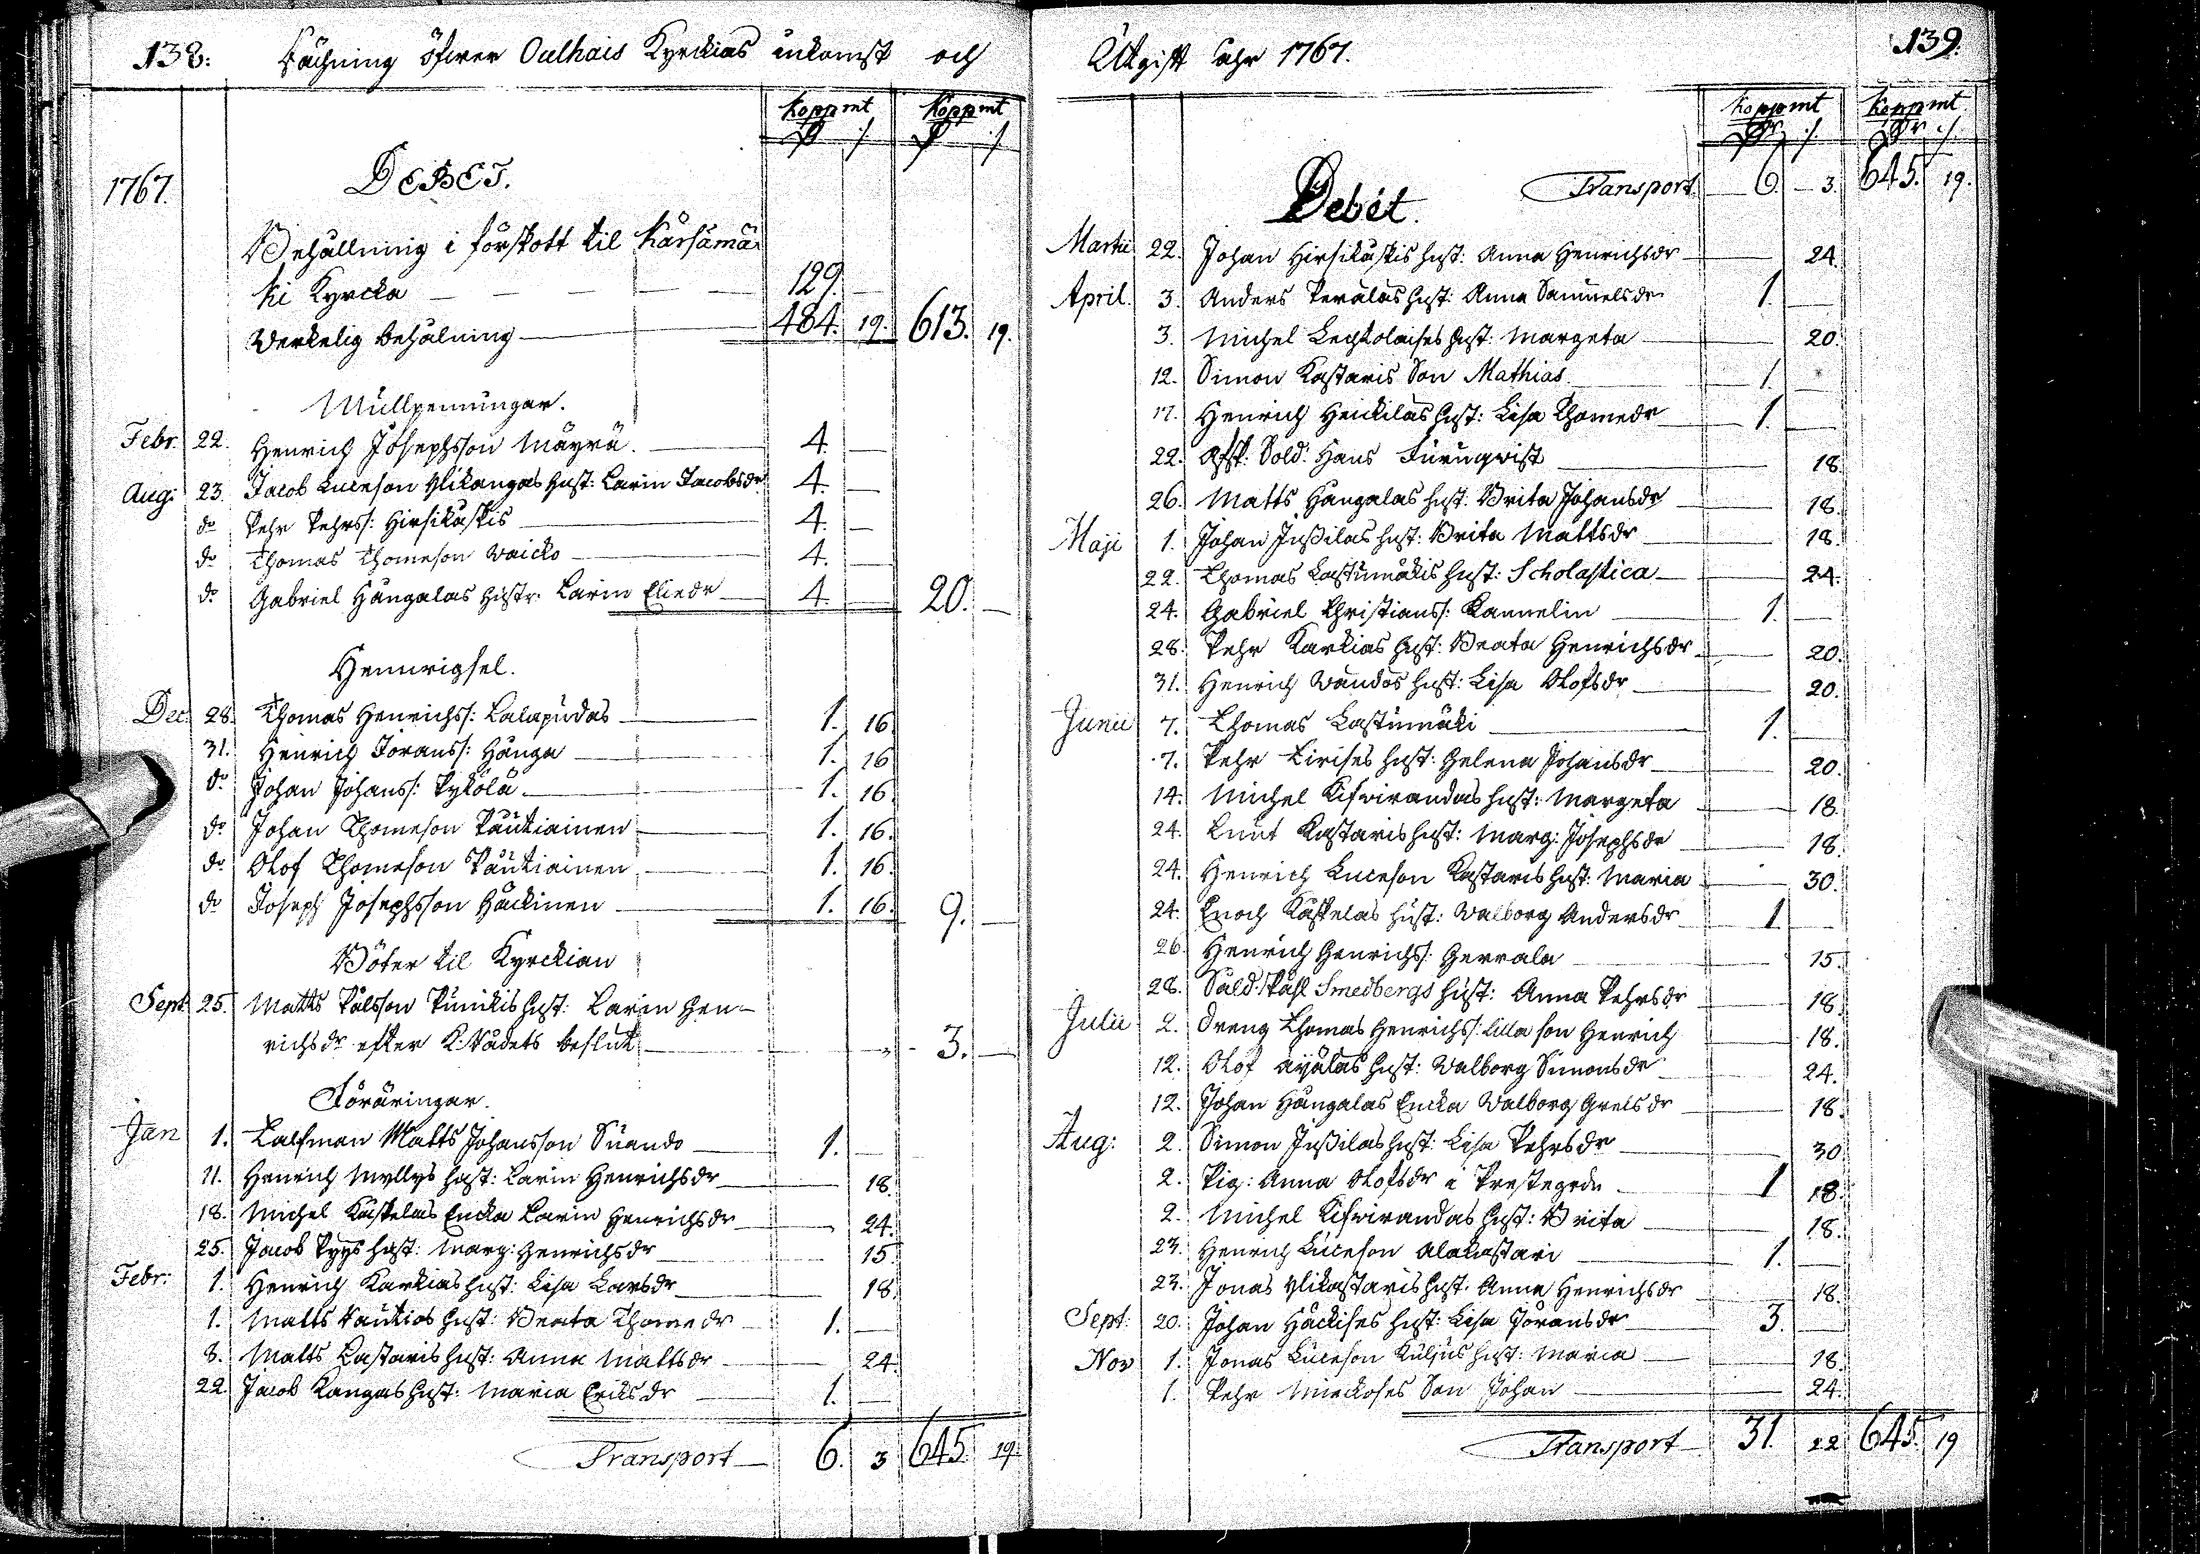 138.
Räckning öfwer Oulhais Kyrckias inkomst och
Koppmt Koppmt
1767.
DEBET.
Behållning i förskott til Kärsämä
ki Kyrcka — 129. —
Werkelig behålning — 484. 19. 613. 19.
Mullpenningar.
Febr. 22. Henrich Josephsson Mäyrä. — 4. —
Aug: 23. Jacob Luceson Ylikangas hust: Carin Jacobsdr 4. —
do Pehr Pehrss: Hirsikåskis — 4. —
do Thomas Thomeson Waicko — 4. —
do Gabriel Hångalas hustr. Carin Eliedr — 4. — 20. —
Hemrigsel.
Dec. 28. Thomas Henrichss: Lalapudas — 1. 16.
31. Henrich Joranss: Hånga — 1. 16
do Johan Johanss: Pykölä — 1. 16.
do Johan Thomeson Pautiainen — 1. 16.
do Olof Thomeson Pautiainen — 1. 16.
do Joseph Josephsson Häckinen — 1. 16. 9. —
Böter til Kyrckian
Sept. 25. Matts Pålsson Punikis hust: Carin Hen-
richsdr efter K:Rådets beslut — 3. —
Föräringar.
Jan 1. Talfman Matts Johansson Suando — 1. —
11. Henrich Myllys hust: Carin Henrichsdr — 18.
18. Michel Käspelas Encka Carin Henrichsdr — 24.
25. Jacob Pyys hust: Marg: Henrichsdr — 15.
Febr: 1. Henrich Karkias hust: Lisa Larsdr — 18.
1. Matts Rautios hust: Beata Thomedr — 1. —
8. Matts Kastaris hust: Anna Mattsdr — 24.
22. Jacob Kangas hust: Maria Ericsdr — 1. —
Transport — 6. 3 645. 19.
139.
Utgift Åhr 1767.
Koppmt Koppmt
Debét.
Transport. — 6. — 3. 645. 19.
Martii 22. Johan Hirsikåskis hust: Anna Henrichsdr — 24.
April. 3. Anders Peräläs hust: Anna Samuelsdr 1. —
3. Michel Lechtolaises hust: Margeta — 20.
12. Simon Kastaris Son Mathias. — 1. —
17. Henrich Heickiläs hust: Lisa Thomedr — 1. —
22. Afsk: Sold: Hans Furuqwist — 18.
26. Matts Hångalas hust: Brita Johansdr — 18.
Maji 1. Johan Jussilas hust: Brita Mattsdr — 18.
22. Thomas Lastumäkis hust: Scholastica — 24.
24. Gabriel Christianss: Kannelin — 1. —
28. Pehr Karkias hust: Beata Henrichsdr — 20.
31. Henrich Wandos hust: Lisa Olofsdr — 20.
Junii 7. Thomas Lastumäki — 1. —
7. Pehr Tirises hust: Helena Johansdr — 20.
14. Michel Kifwirandas hust: Margeta — 18.
24. Knut Kastaris hust: Marg: Josephsdr — 18.
24. Henrich Luceson Kastaris hust: Maria — 30.
24. Enoch Käspelas hust: Walborg Andersdr — 1 —
26. Henrich Henrichss: Herrala — 15.
28. Sald: Påhl Smedbergs hust: Anna Pehrsdr — 18.
Julii 2. Dreng Thomas Henrichss: lilla son Henrich — 18.
12. Olof Ayälas hust: Walborg Simonsdr — 24.
12. Johan Hångalas Encka Walborg Grelsdr — 18.
Aug: 2. Simon Jussilas hust: Lisa Pehrsdr — 30.
2. Pig: Anna Olofsdr i Prestegrdn — 1 18.
2. Michel Kifwirandas hust: Brita — 18.
23. Henrich Luceson Alakastari — 1. —
23. Jonas Ylikastaris hust. Anna Henrichsdr — 18.
Sept: 20. Johan Häckises hust: Lisa Joransdr — 3. —
Nov 1. Jonas Luceson Kuljus hust: Maria — 18.
1. Pehr Mieckoses Son Johan — 24.
Transport — 31. 22 645. 19